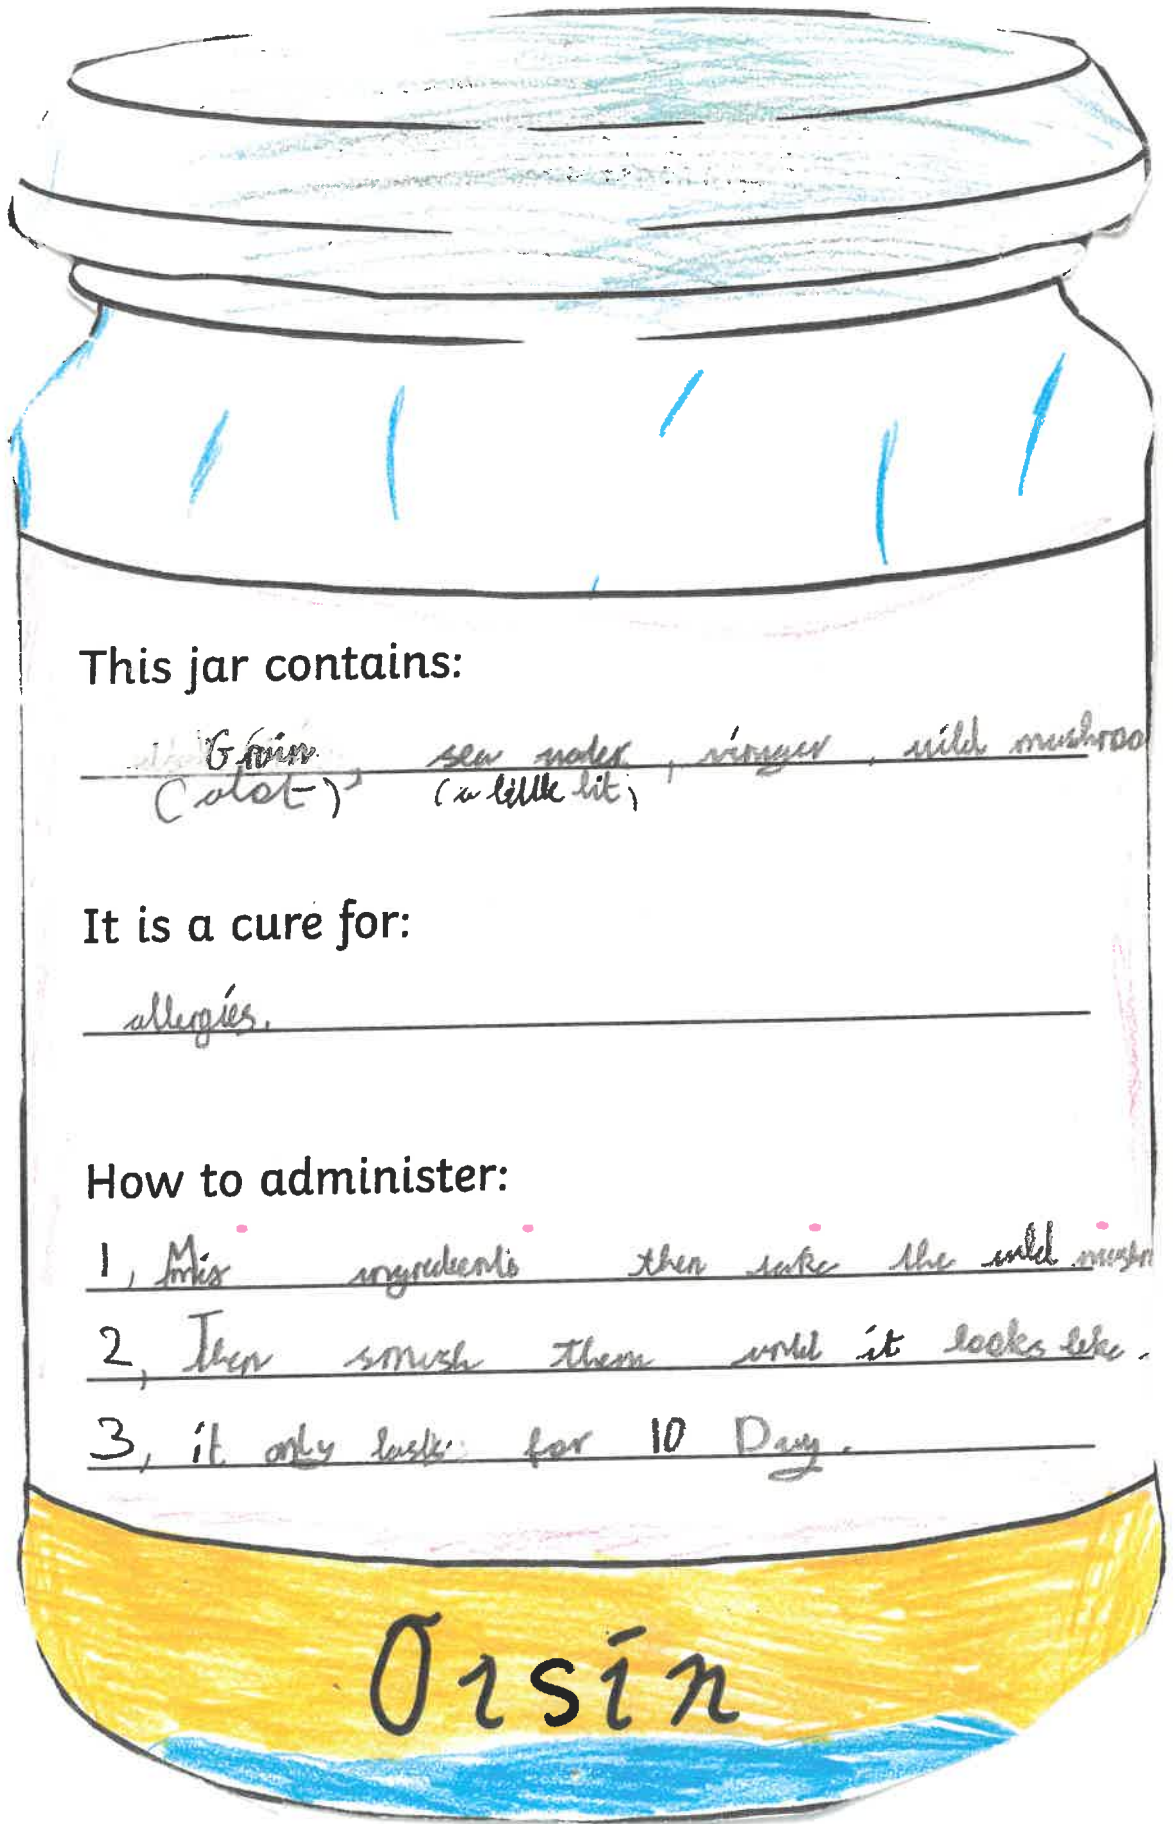 This jar contains:
Grain, sea water, vinager, wild mushroo
(alot) (a little bit)
It is a cure for:
allergies.
How to administer:
1, Mix ingredients then take the wild mushr
2, Then smush them until it looks like.
3, it only lasts for 10 Day.
Oisín